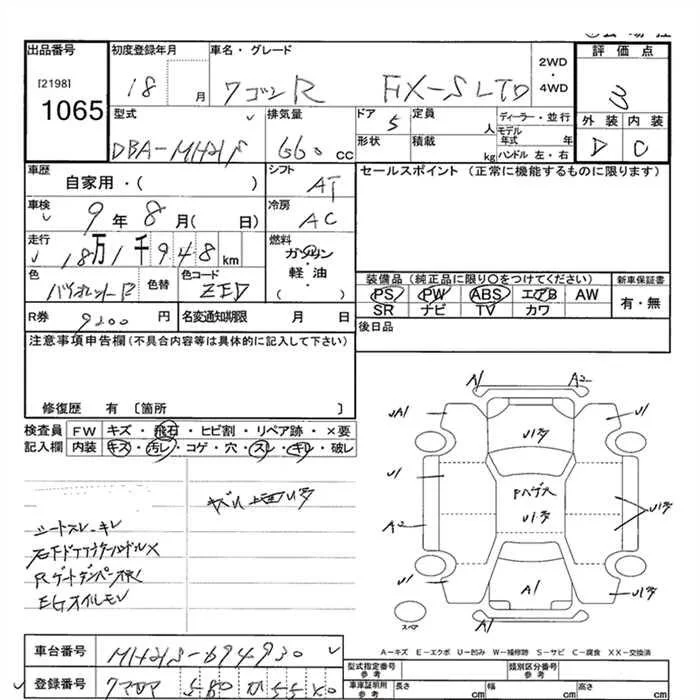 出品番号
[2198]
1065
初度登録年月
18 月
車名・グレード
ワゴンR FX-S LTD
2WD
・
4WD
評価点
3
外装 内装
D C
型式
DBA-MH21S
排気量
660 cc
ドア
5
定員
人
形状
積載
kg
ディーラー・並行
モデル
年式 年
ハンドル 左・右
車歴
自家用・( )
シフト
AT
セールスポイント (正常に機能するものに限ります)
車検
9年8月( 日)
冷房
AC
走行
18万1千948km
燃料
ガソリン
軽油・
( )
色
バイオレットR
色替
色コード
ZED
装備品 (純正品に限り○をつけてください)
新車保証書
PS PW ABS エアB AW
SR ナビ TV カワ
有・無
R券
円
名変通知期限 月 日
後日品
注意事項申告欄(不具合内容等は具体的に記入して下さい)
修復歴 有 〔箇所 〕
検査員
記入欄
FW キズ・飛石・ヒビ割・リペア跡・×要
内装 キズ・汚レ・コゲ・穴・スレ・キレ・破レ
シートスレ、キレ
Rゲートダンパー
EGオイルモレ
A1 A2
UA1 U1
U1
U1
A2
U1
A1
A1
スペア
A-キズ E-エクボ U-凹み W-補修跡 S-サビ C-腐食 XX-交換済
車台番号
MH21S-694930
登録番号
型式指定番号
参考
類別区分番号
参考
車庫証明用
参考
長さ cm
幅 cm
高さ cm